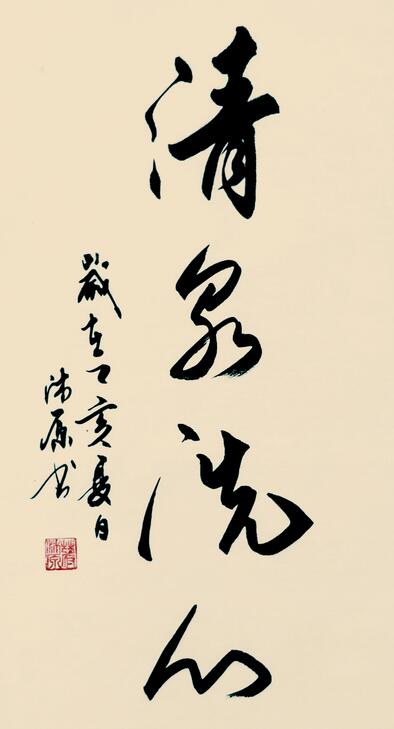 清泉洗心
歲在亥夏日
沛原书